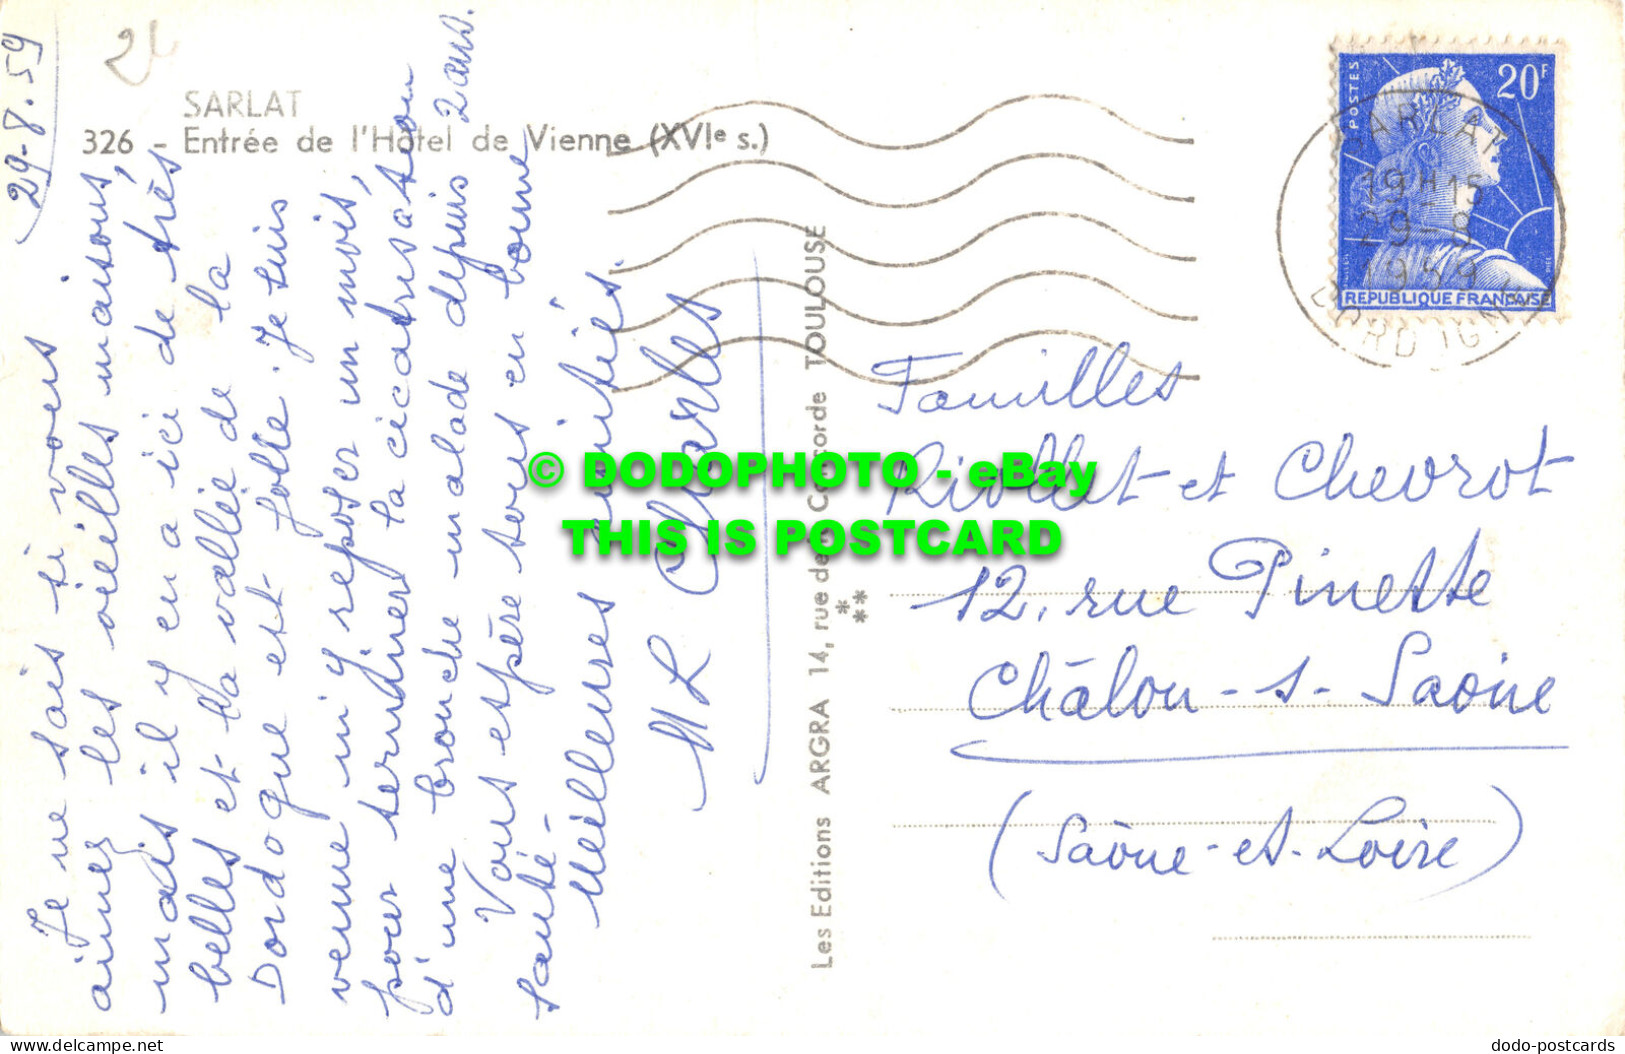 29-8.59
SARLAT
326 - Entrée de l'Hôtel de Vienne (XVIe s.)
Je ne sais si vous
aimez les vieilles maisons,
mais il y en a ici de très
belles et la vallée de la
Dordogne est jolie. Je suis
venue m'y reposer un mois,
pour terminer la cicatrisation
d'une bronche malade depuis 2 ans.
Vous espère tous en bonne
santé -
Meilleures amitiés.
ML Charles
Les Editions ARGRA 14, rue de la Concorde TOULOUSE
POSTES
20F
REPUBLIQUE FRANÇAISE
SARLAT
19H15
29-8
1959
DORDOGNE
Familles
Riollet et Chevrot
12, rue Pinette
Châlon-s-Saône
(Saône-et-Loire)
© DODOPHOTO - eBay
THIS IS POSTCARD
delcampe.net
dodo-postcards